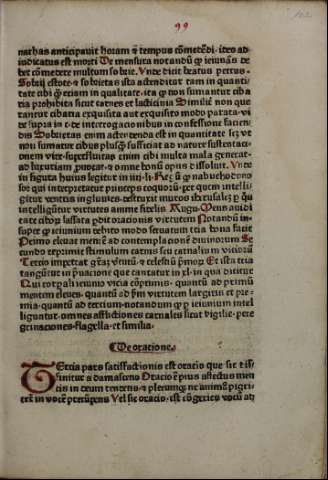 99
102
nathas anticipauit horam ⁊ tempus cōmetēdi .iteo ad
iudicatus est morti De mensura notandū ꝙ ieiunās de
bet cōmedere multum sobrie. Vnde dicit beatus petrus.
Sobrij estote ⁊ sobrietas ista actenditur tam in quanti-
tate cibi ꝙ etiam in qualitate .ita ꝙ non sumantur ciba
ria prohibita sicut carnes et lacticinia Similiter non que
rantur cibaria exquisita aut exquisito modo parata .vi
de supra in c. de interrogacionibus in confessione facien
dis Sobrietas enim actendenda est in quantitate scz vt
non sumatur cibus plusꝙ sufficiat ad nature sustentaci-
onem vite .superfluitas enim cibi multa mala generat .
ad luxuriam prouocat .⁊ omne bonū opus dissoluit. Vnde
in figura huius legitur in iiij. li. Reg. ꝙ nabuchodono
sor qui interpretatur princeps coquorū .per quem intelli-
gitur ventris ingluuies .destruxit muros iherusalem per quā
intelligitur virtutes anime fidelis Augus. Mens auidi
tate ciborum lassata perdit oracionis virtutem Notandū in-
super ꝙ ieiunium debito modo seruatum tria bona facit
Primo eleuat mentem ad contemplacionem diuinorum Se
cundo reprimit stimulum carnis seu carnalium viciorū
Tercio impetrat graciam .veniā .⁊ celestiū premiorum Et ista tria
tanguntur in prefacione que cantatur in xl. in qua dicitur
Qui corporali ieiunio vicia cōprimis .quantū ad primū
mentem eleuas .quantū ad secundum virtutem largiris et pre-
mia .quantū ad tercium .notandum ꝙ per ieiunium intel
liguntur .omnes afflictiones carnales sicut vigilie .pere
grinaciones .flagella .et similia.
De oratione.
Tercia pars satisfactionis est oracio que sic dif-
finitur a damasceno Oracio est pius affectus men
tis in deum tendens .⁊ plerumque ne animus pigri-
tetur in vocem prorumpens Vel sic oracio .est cōgeries vocū ad